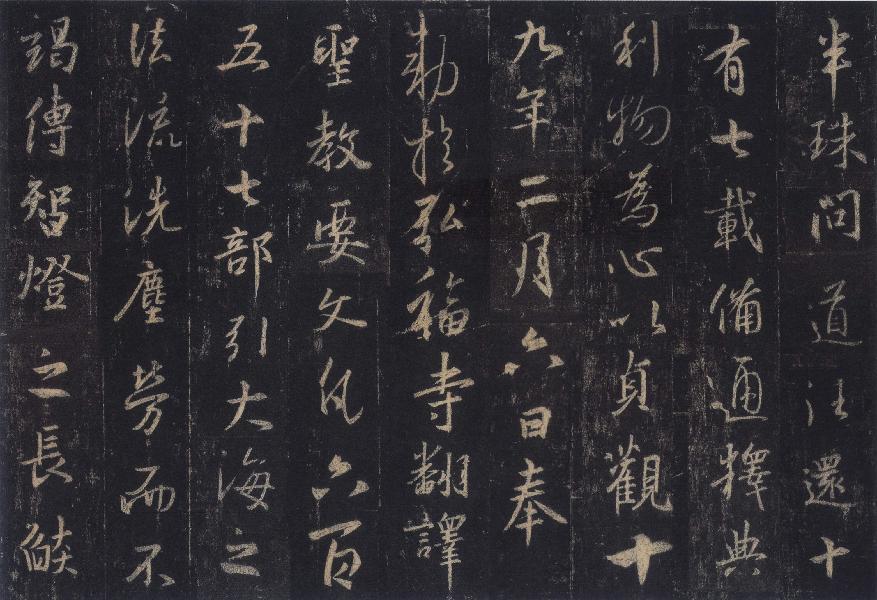 半珠問道注還十
有七載備通釋典
利物為心以貞觀十
九年二月六日奉
勅於弘福寺翻譯
聖教要文凡六百
五十七部引大海之
法流洗塵勞而不
竭傳智燈之長皎